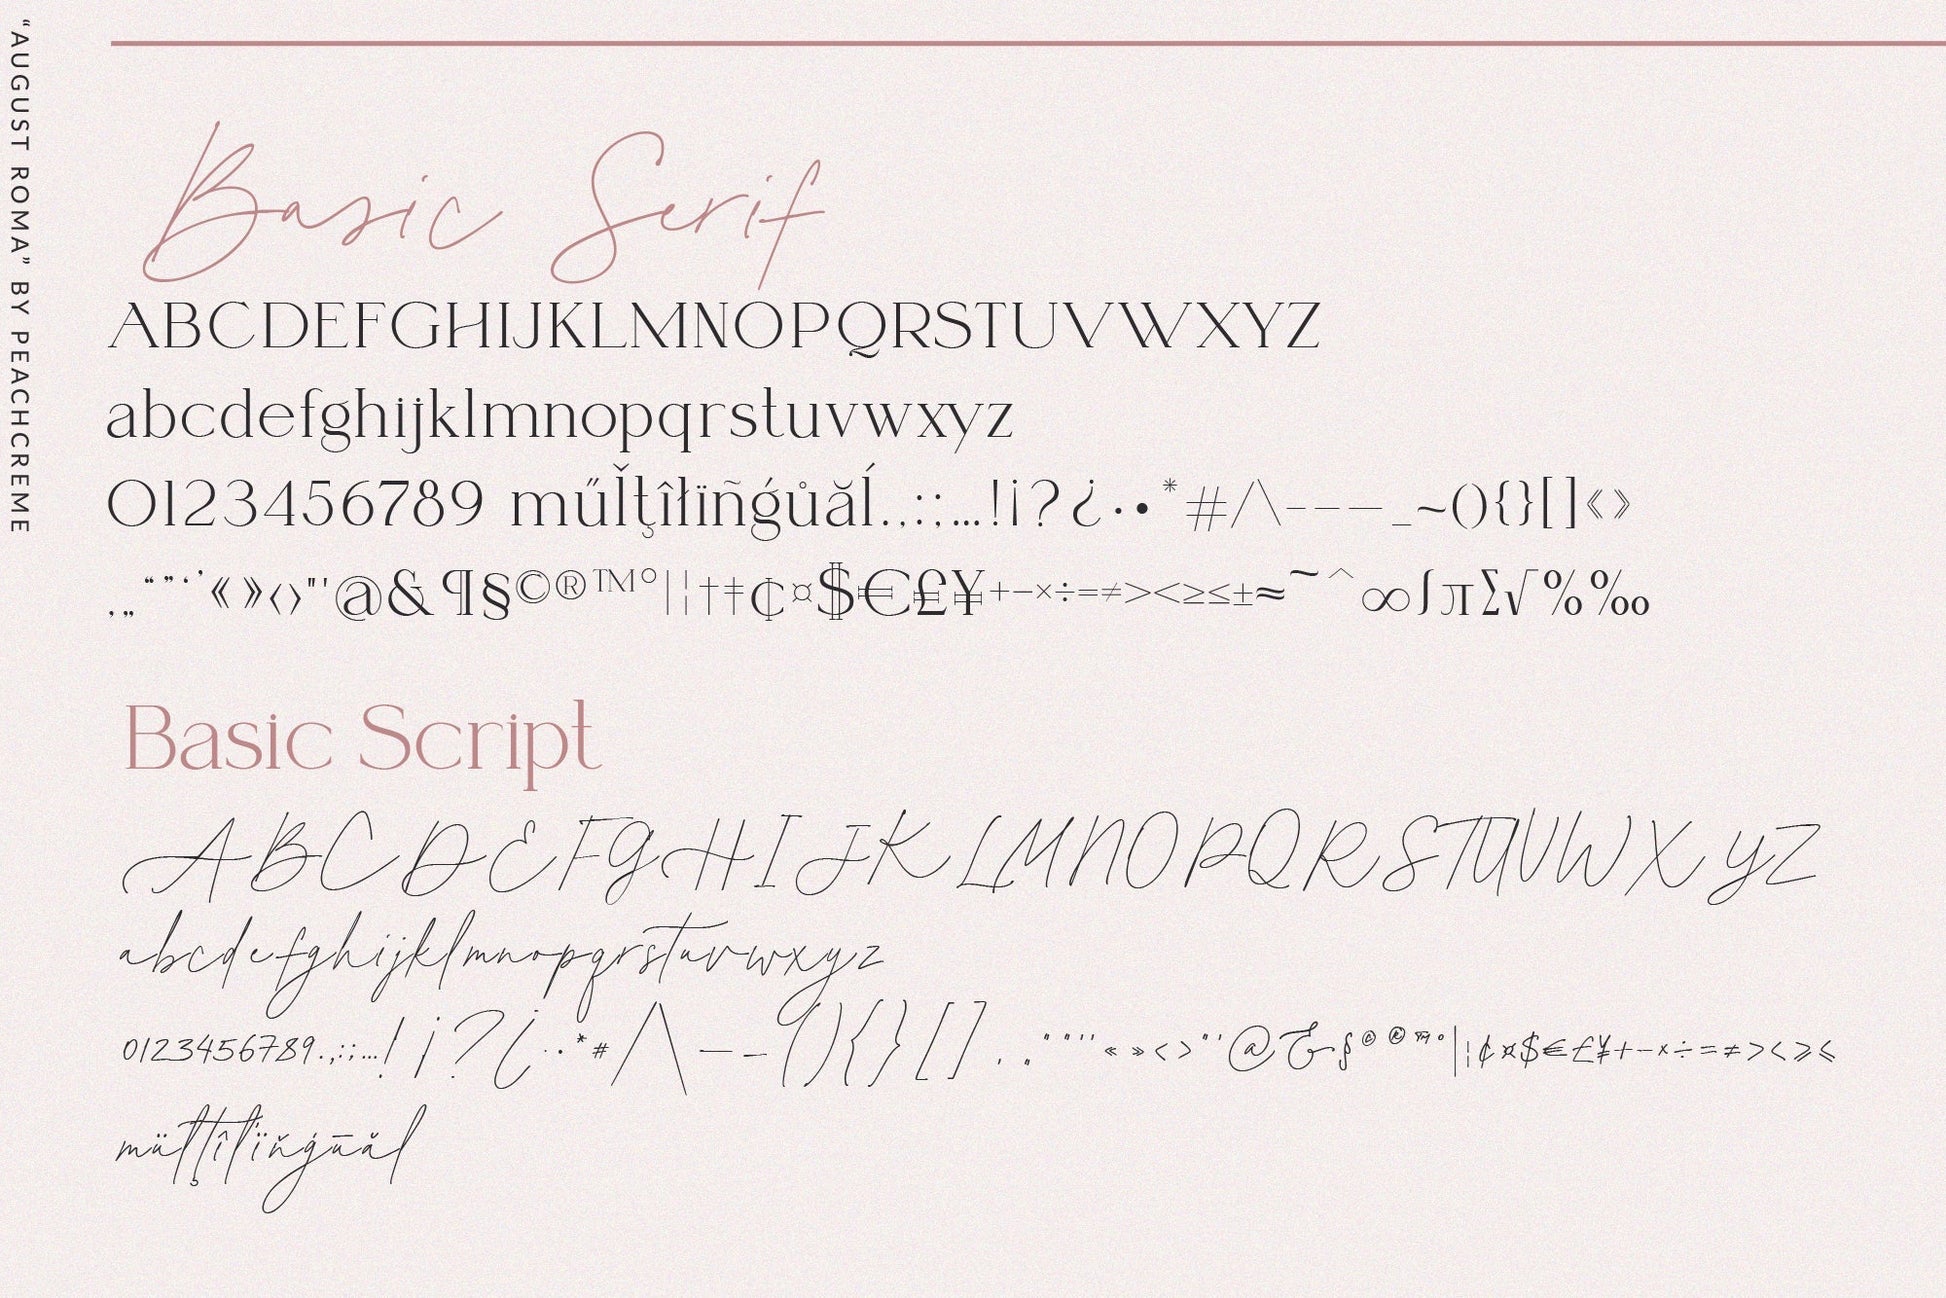 “AUGUST ROMA” BY PEACHCREME
Basic Serif
ABCDEFGHIJKLMNOPQRSTUVWXYZ
abcdefghijklmnopqrstuvwxyz
0123456789 műľţîłïñģůăĺ.,:;...!¡?¿·•*#/\-–—_~(){}[]《》
‚„“”‘’«»‹›"'@&¶§©®™°|¦†‡¢¤$€£¥+−×÷=≠><≥≤±≈~^∞∫π∑√%‰
Basic Script
ABCDEFGHIJKLMNOPQRSTUVWXYZ
abcdefghijklmnopqrstuvwxyz
0123456789.,:;...!¡?¿·•*#/\–-(){}[]‚„“”‘’«»<>"'@&§©®™°|¦¢¤$€£¥+−×÷=≠><≥≤
müľţîľïňģūăl